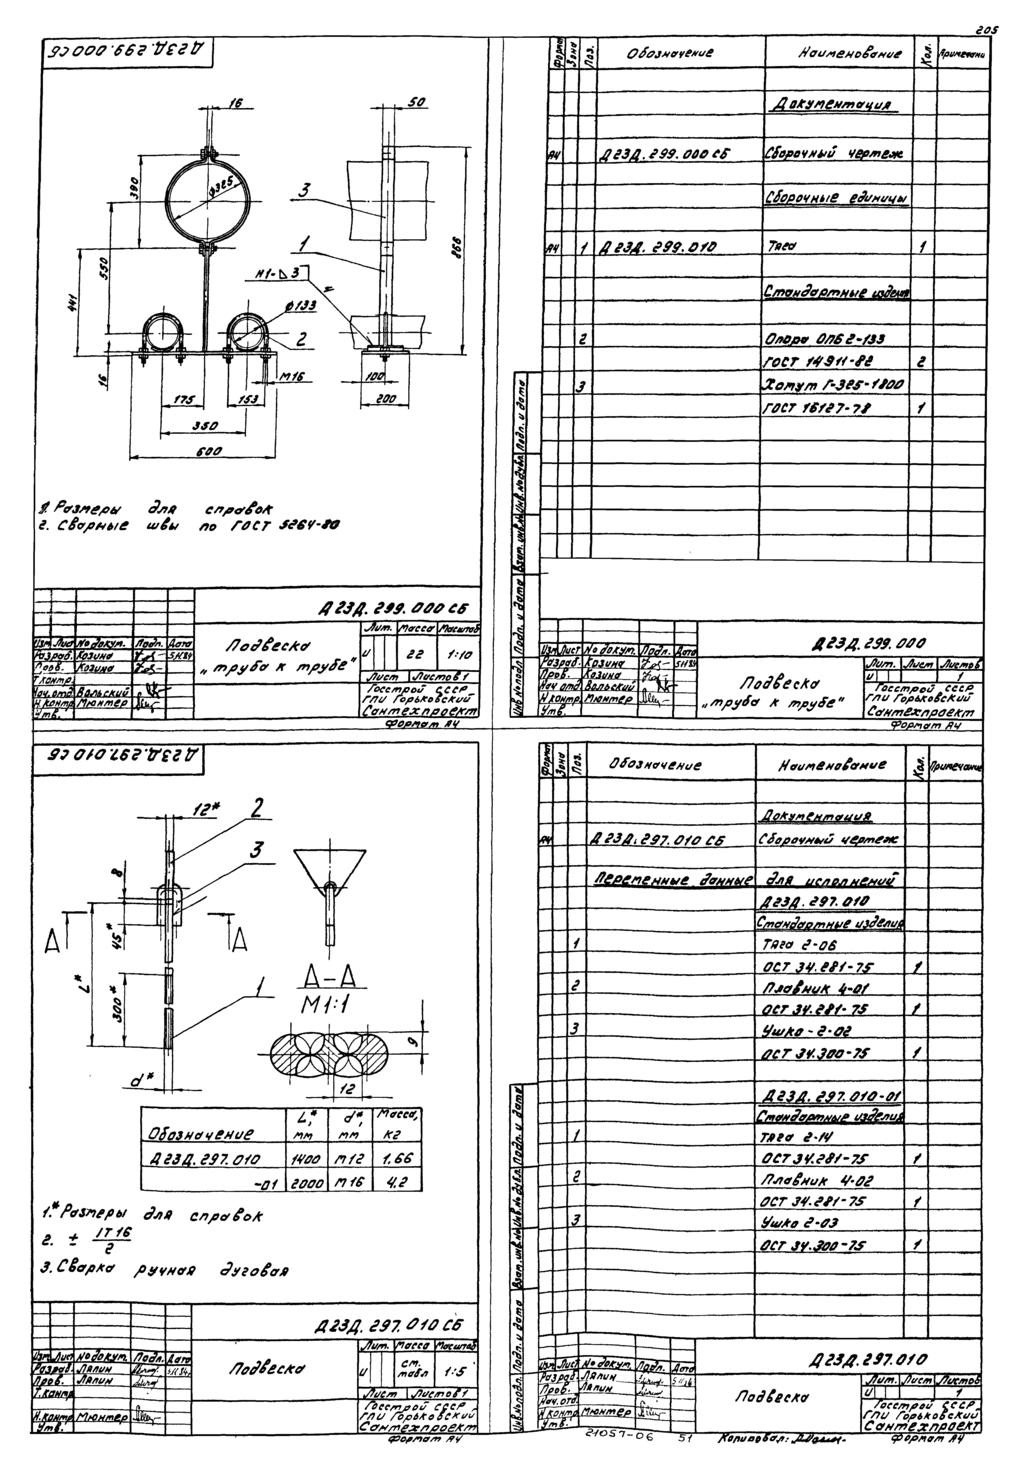 205
Д23Д.299.000 СБ
16
50
390
ф325
3
1
550
441
866
Н1-△3
ф133
2
16
М16
175
153
350
600
100
200
1. Размеры для справок
2. Сварные швы по ГОСТ 5264-80
Д23Д.299.000 СБ
Подвеска
„труба к трубе"
Лит. Масса Масштаб
и 22 1:10
Лист Листов 1
Изм Лист № докум. Подп. Дата
Разраб. Козина 5.11.84
Пров. Козина
Т.контр.
Нач.отд. Вольский
Н.контр. Мюнтер
Утв.
Госстрой СССР
ГПИ Горьковский
Сантехпроект
Формат А4
Формат Зона Поз. Обозначение Наименование Кол. Примечани
Документация
А4 Д23Д.299.000 СБ Сборочный чертеж
Сборочные единицы
А4 1 Д23Д.299.010 Тяга 1
Стандартные изделия
2 Опора ОПБ2-133
ГОСТ 14911-82 2
3 Хомут Г-325-1800
ГОСТ 16127-78 1
Инв.№подл. Подп. и дата Взам.инв.№ Инв.№дубл. Подп. и дата
Д23Д.299.000
Изм Лист № докум. Подп. Дата
Разраб. Козина 5.11.84
Пров. Козина
Нач.отд. Вольский
Н.контр. Мюнтер
Утв.
Подвеска
„труба к трубе"
Лит. Лист Листов
и 1
Госстрой СССР
ГПИ Горьковский
Сантехпроект
Формат А4
Д23Д.297.010 СБ
12*
2
3
8
А А
45*
L*
300*
1
d*
А-А
М1:1
9
12
Обозначение L*, мм d*, мм Масса, кг
Д23Д.297.010 1400 М12 1.66
-01 2000 М16 4.2
1.* Размеры для справок
2. ± IT16/2
3. Сварка ручная дуговая
Д23Д.297.010 СБ
Подвеска
Лит. Масса Масштаб
и см. табл 1:5
Лист Листов 1
Изм Лист № докум. Подп. Дата
Разраб. Ляпин
Пров. Ляпин
Т.контр.
Н.контр. Мюнтер
Утв.
Госстрой СССР
ГПИ Горьковский
Сантехпроект
Формат А4
Формат Зона Поз. Обозначение Наименование Кол. Примечание
Документация
А4 Д23Д.297.010 СБ Сборочный чертеж
Переменные данные для исполнений
Д23Д.297.010
Стандартные изделия
1 Тяга 2-06
ОСТ 34.281-75 1
2 Плавник 4-01
ОСТ 34.281-75 1
3 Ушко-2-02
ОСТ 34.300-75 1
Д23Д.297.010-01
Стандартные изделия
1 Тяга 2-14
ОСТ 34.281-75 1
2 Плавник 4-02
ОСТ 34.281-75 1
3 Ушко 2-03
ОСТ 34.300-75 1
Инв.№подл. Подп. и дата Взам.инв.№ Инв.№дубл. Подп. и дата
Д23Д.297.010
Изм Лист № докум. Подп. Дата
Разраб. Ляпин
Пров. Ляпин
Нач.отд.
Н.контр. Мюнтер
Утв.
Подвеска
Лит. Лист Листов
и 1
Госстрой СССР
ГПИ Горьковский
Сантехпроект
21057-06 51 Копировал: Формат А4